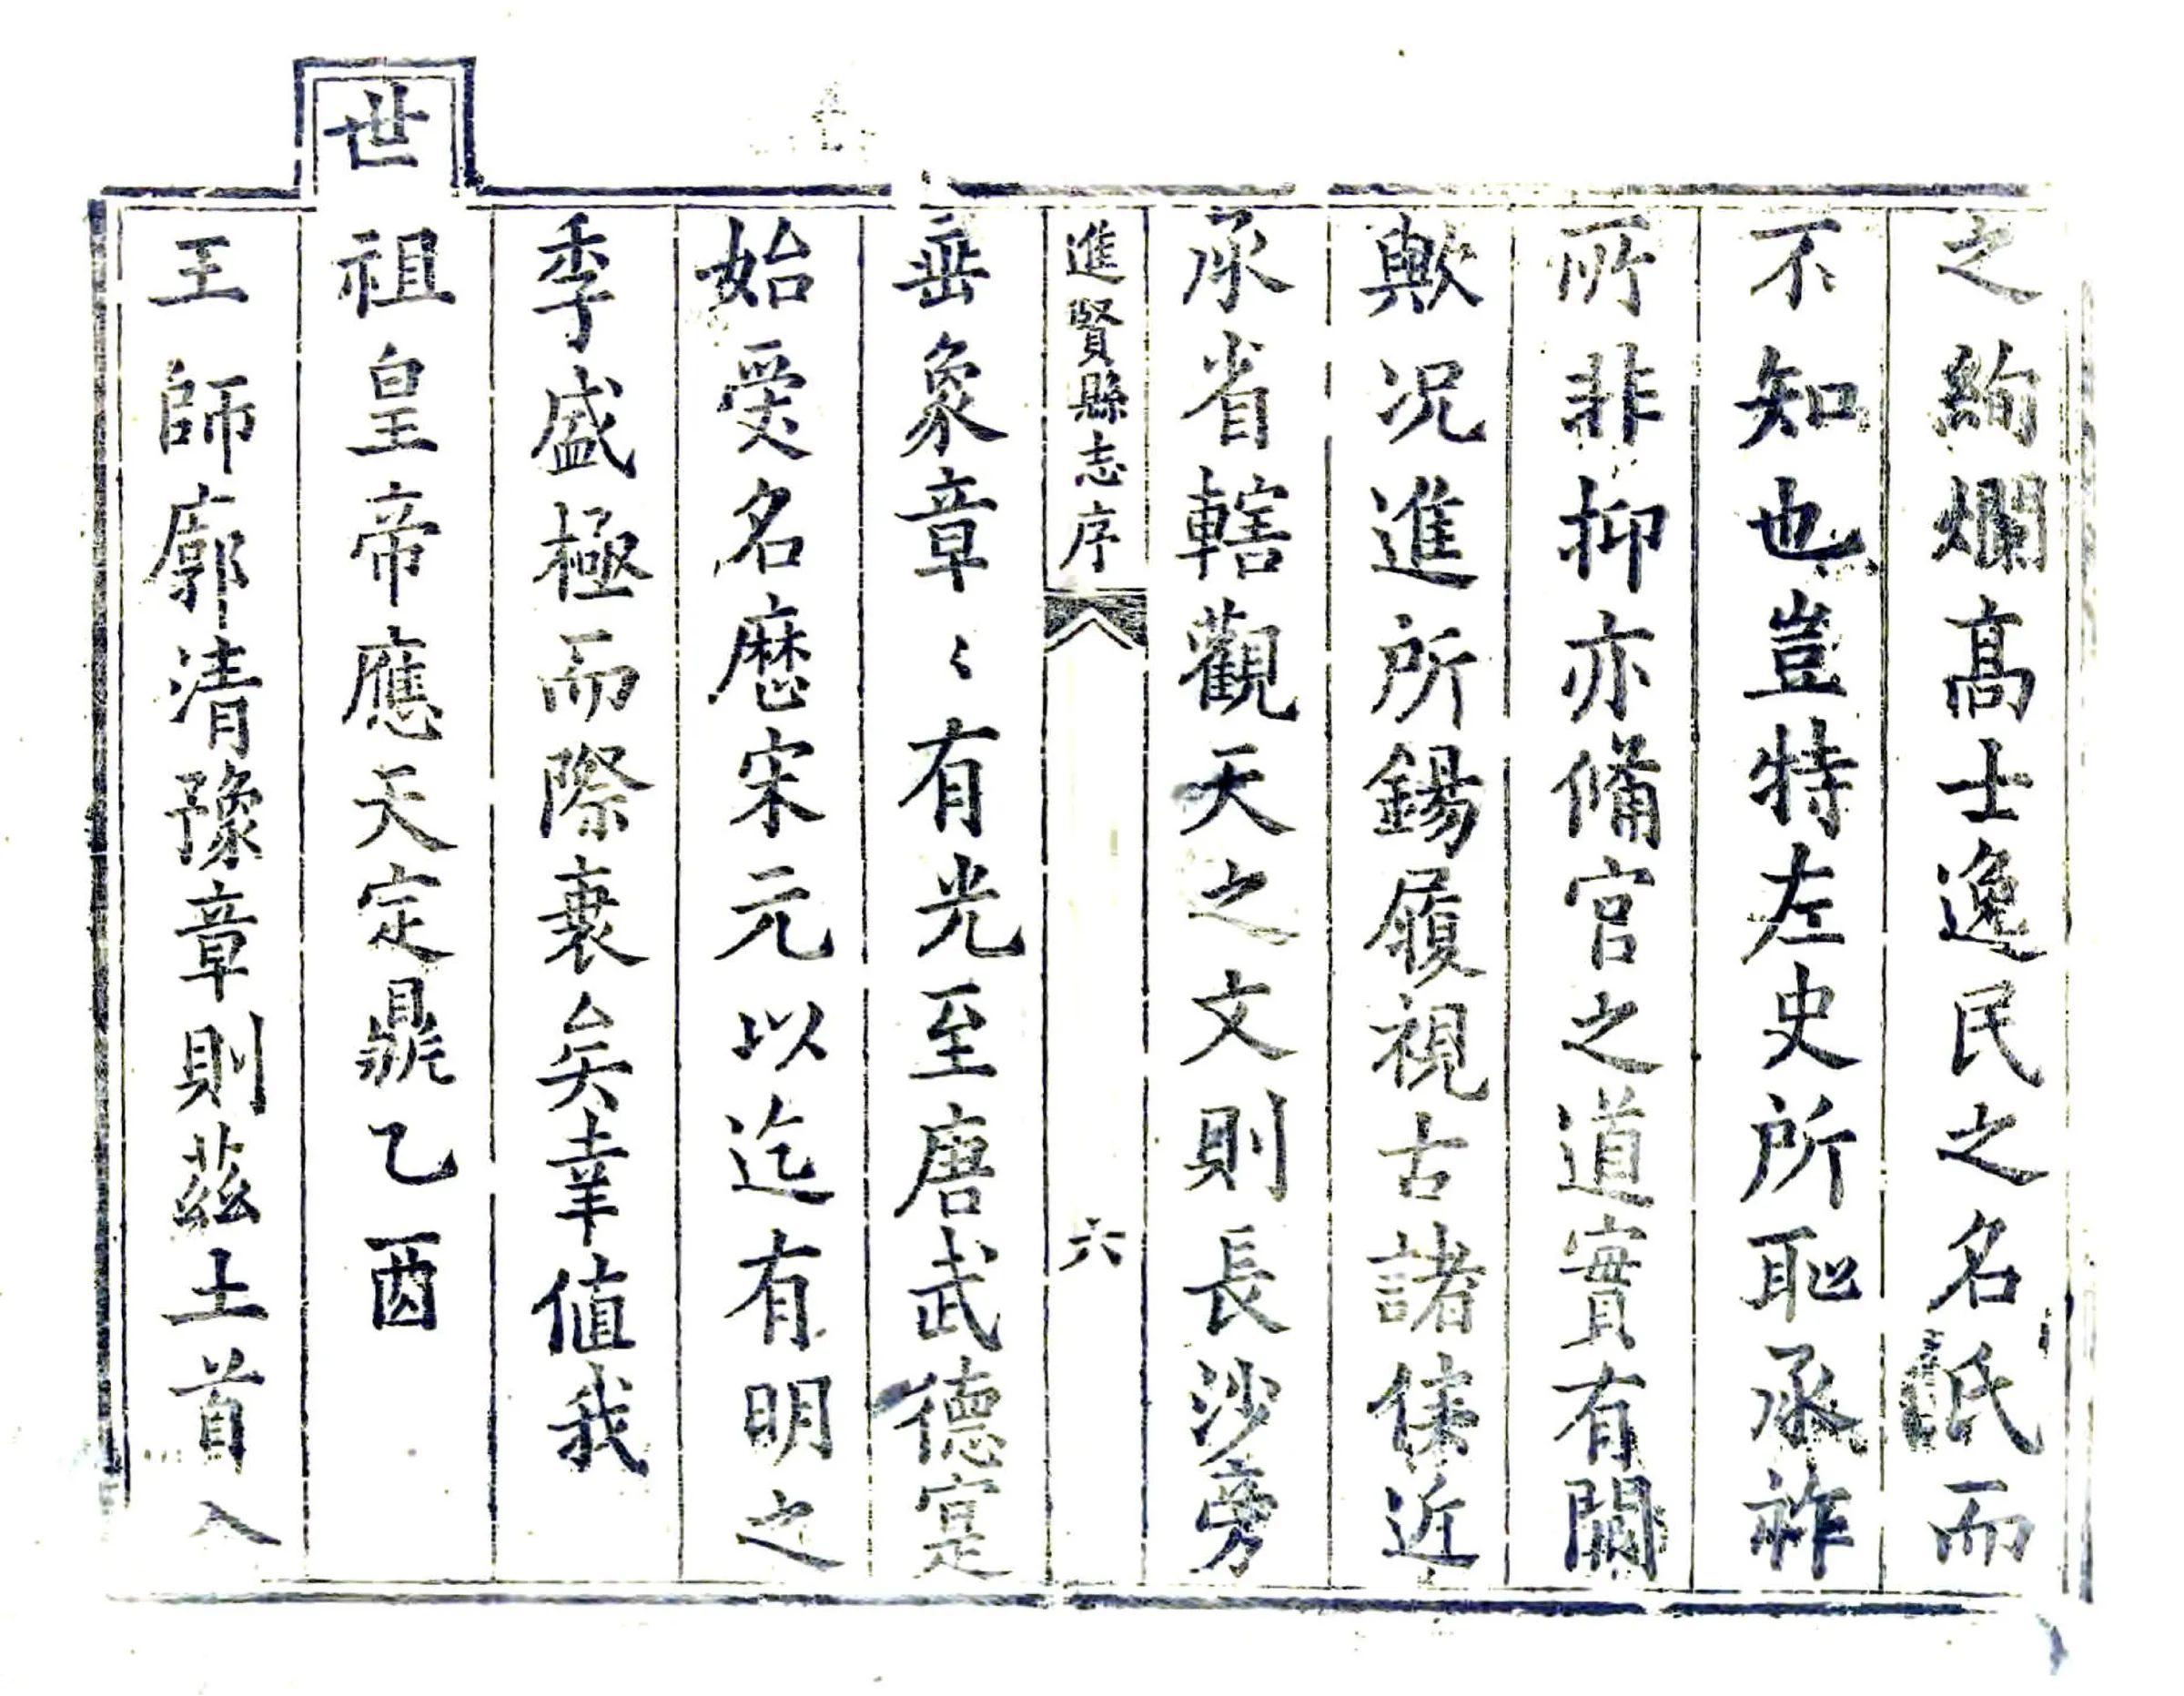 之絢爛髙士逸民之名氏而
不知也豈特左史所恥承祚
所非抑亦俻官之道實有闕
歟况進所錫履視古諸侯近
承省轄觀天之文則長沙旁
進賢縣志序
六
垂象章〻有光至唐武德寔
始受名歷宋元以迄有明之
季盛極而際衰矣幸值我
世祖皇帝應天定鼎乙酉
王師廓清豫章則茲土首入